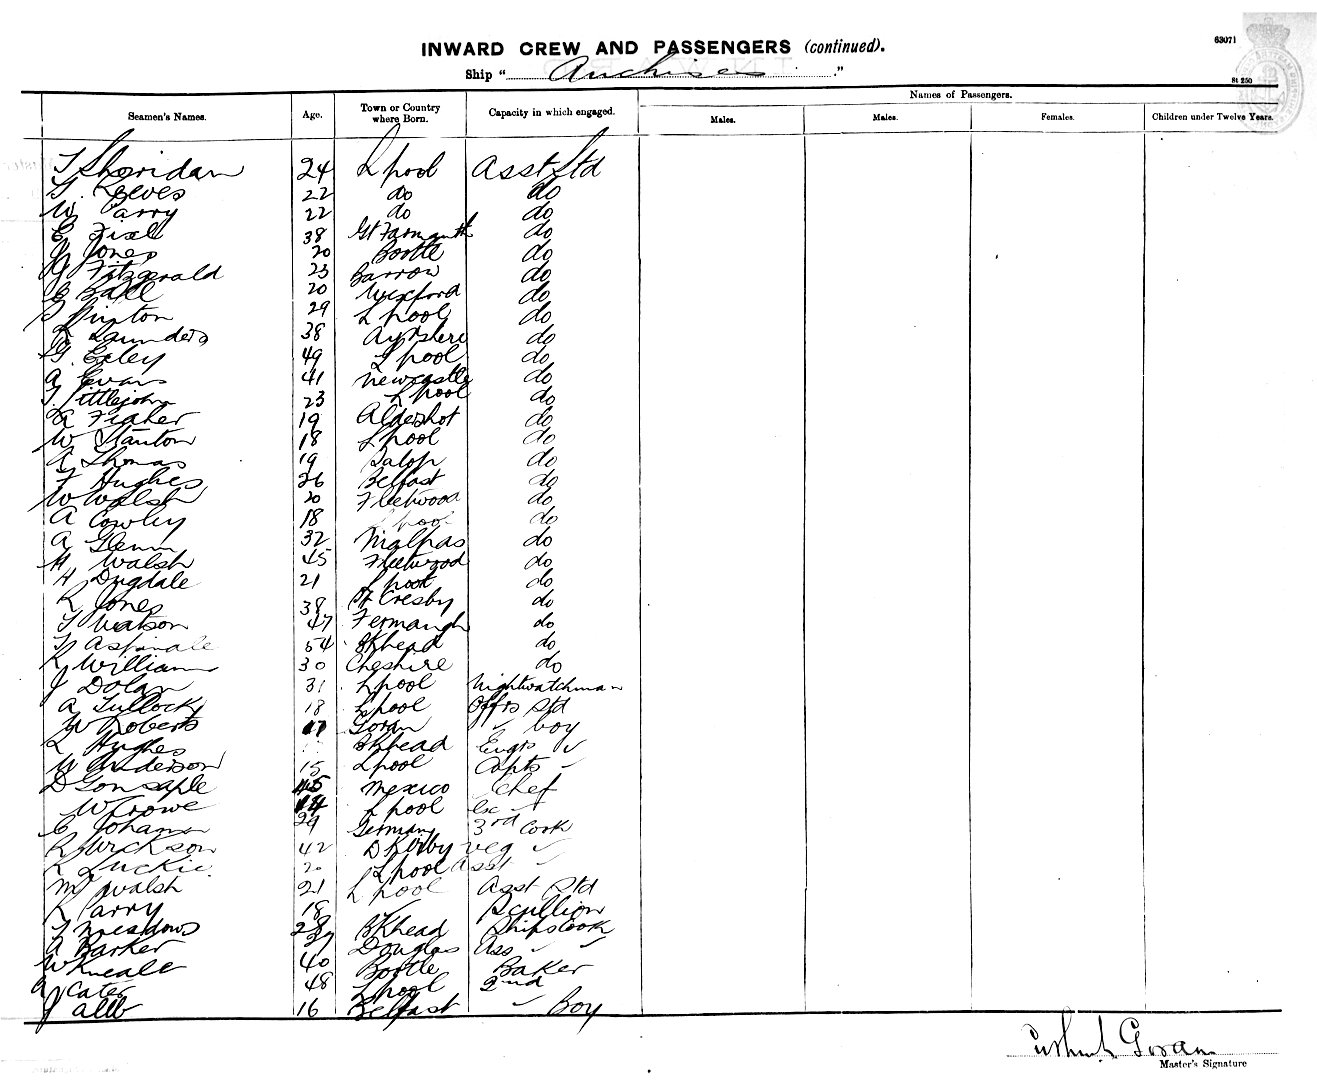 63071
INWARD CREW AND PASSENGERS (continued).
Ship " Anchises "
St 250
Names of Passengers.
Seamen's Names. Age. Town or Country where Born. Capacity in which engaged. Males. Males. Females. Children under Twelve Years.
T Sheridan 24 Lpool Asst Std
T. Reeves 22 do do
W Parry 22 do do
C 38 Gt Yarmouth do
Jones 20 Bootle do
Fitzgerald 23 Barrow do
C Ball 20 Wexford do
29 Lpool do
Saunders 38 Ayrshire do
G. Exley 49 Lpool do
A Evans 41 Newcastle do
T. Littlejohn 23 Lpool do
Fisher 19 Aldershot do
W Stanton 18 Lpool do
A Thomas 19 Salop do
F Hughes 26 Belfast do
W Walsh 20 Fleetwood do
A Cowley 18 Lpool do
A Glenn 32 Malpas do
H Walsh 45 Fleetwood do
H Dugdale 21 Lpool do
R Jones 38 Gt Cresby do
T Watson 47 Fermangh do
Aspinale 54 Bkhead do
R Williams 30 Cheshire do
J Dolan 31 Lpool Nightwatchman
A Tullock 18 Lpool Offrs Std
W Roberts 17 Goran boy
R Hughes Bkhead Engrs
W Anderson 15 Lpool Capts
D Gonsaple 45 Mexico Chef
W Crowe Lpool
C Johanson 29 Germany 3rd Cook
R 42 Dkirby Veg
R Luckie 20 Lpool Asst
M Walsh 21 Lpool Asst Std
R Parry 18 Scullion
T Meadows 28 Bkhead Ships Cook
A Barker 37 Douglas Ass
W Kneale 40 Bootle Baker
A Cater 48 Lpool 2nd
J 16 Belfast Boy
Master's Signature